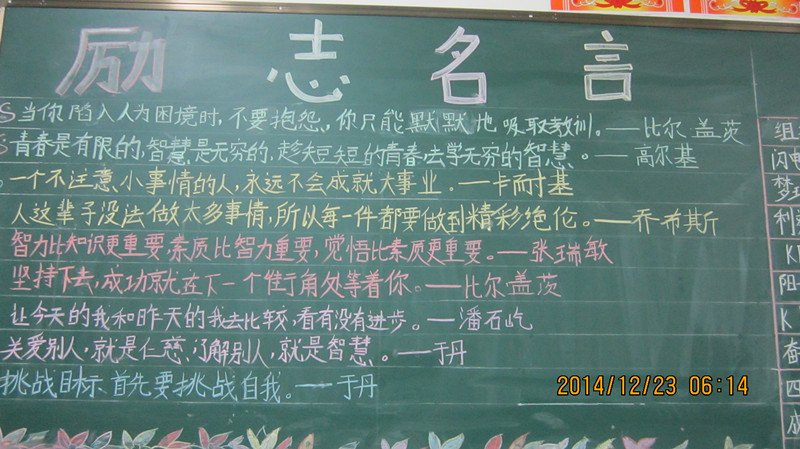 励志名言
当你陷入人为困境时，不要抱怨，你只能默默地吸取教训。——比尔·盖茨
青春是有限的，智慧是无穷的，趁短短的青春去学无穷的智慧。——高尔基
一个不注意小事情的人，永远不会成就大事业。——卡耐基
人这辈子没法做太多事情，所以每一件都要做到精彩绝伦。——乔·布斯
智力比知识更重要，素质比智力重要，觉悟比素质更重要。——张瑞敏
坚持下去，成功就在下一个街角处等着你。——比尔·盖茨
让今天的我和昨天的我去比较，看有没有进步。——潘石屹
关爱别人，就是仁慈；了解别人，就是智慧。——于丹
挑战目标 首先要挑战自我。——于丹
组
闪电
梦
利
K
阳
K
奋
四
成
2014/12/23 06:14